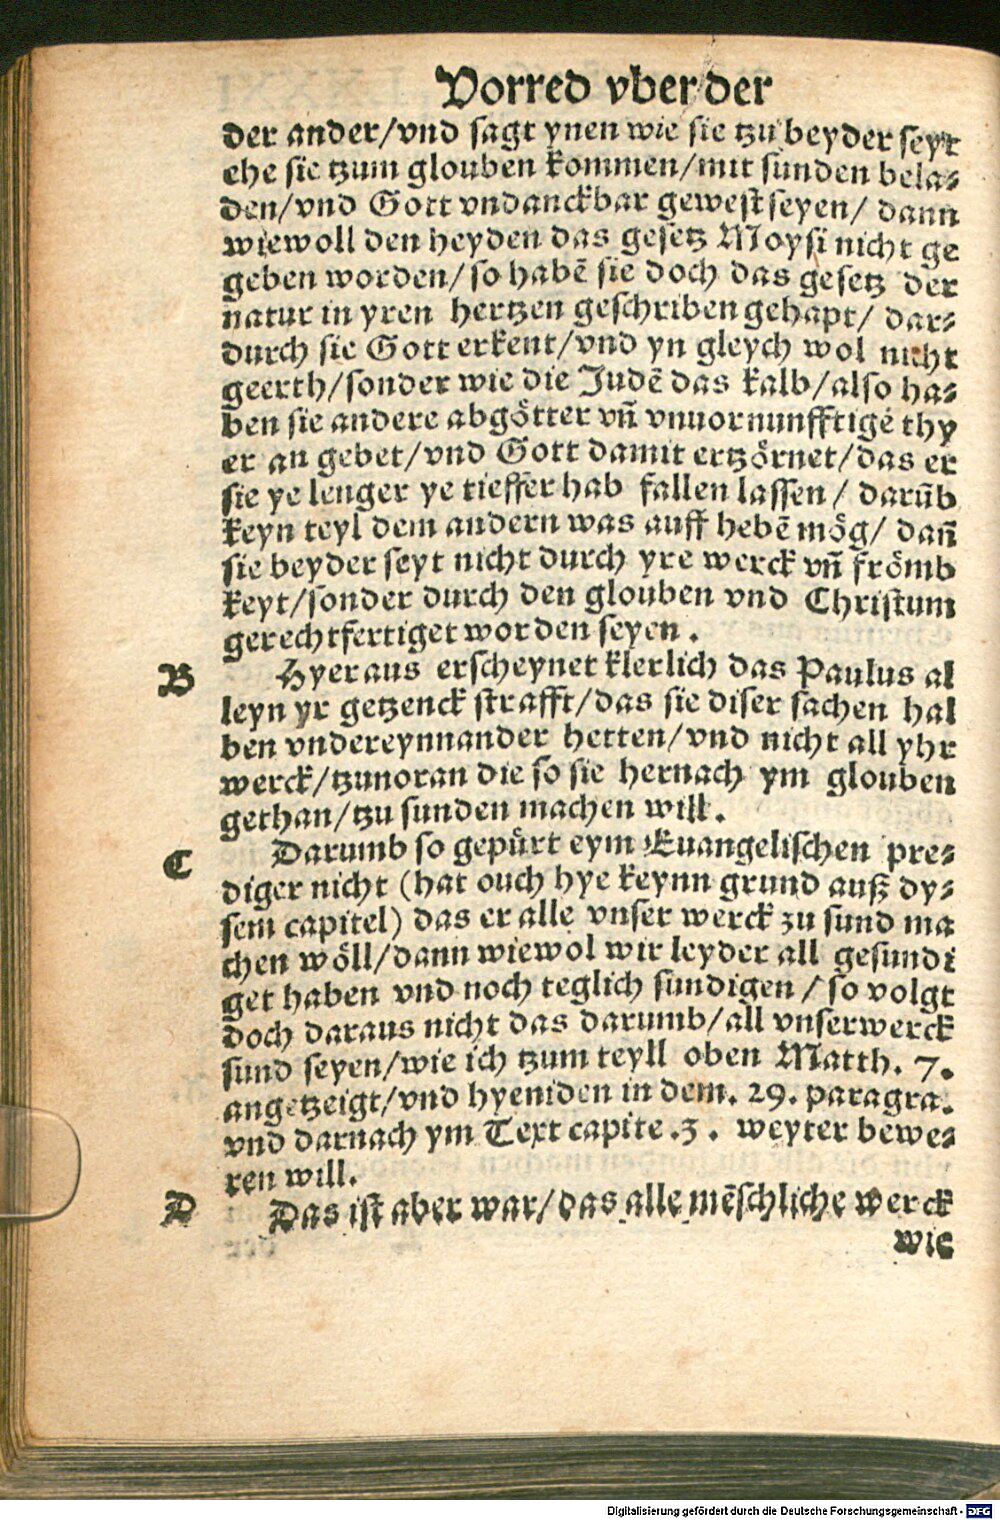 Vorred vber der
der ander/vnd sagt ynen wie sie tzu beyder seyt
ehe sie tzum glouben kommen/mit sunden bela⸗
den/vnd Gott vndanckbar gewest seyen/ dann
wiewoll den heyden das gesetz Moysi nicht ge
geben worden/so habē sie doch das gesetz der
natur in yren hertzen geschriben gehapt/ dar⸗
durch sie Gott erkent/vnd yn gleych wol nicht
geerth/sonder wie die Judē das kalb/also ha⸗
ben sie andere abgötter vn̄ vnuornunfftigē thy
er an gebet/vnd Gott damit ertzörnet/das er
sie ye lenger ye tieffer hab fallen lassen/ darūb
keyn teyl dem andern was auff hebē mög/ dan̄
sie beyder seyt nicht durch yre werck vn̄ frömb
keyt/sonder durch den glouben vnd Christum
gerechtfertiget worden seyen.
B Hyeraus erscheynet klerlich das Paulus al
leyn yr getzenck strafft/das sie diser sachen hal
ben vndereynnander hetten/vnd nicht all yhr
werck/tzuuoran die so sie hernach ym glouben
gethan/tzu sunden machen will.
C Darumb so gepürt eym Euangelischen pre⸗
diger nicht (hat ouch hye keynn grund auß dy⸗
sem capitel) das er alle vnser werck zu sund ma
chen wöll/dann wiewol wir leyder all gesundi
get haben vnd noch teglich sundigen/so volgt
doch daraus nicht das darumb/all vnserwerck
sund seyen/wie ich tzum teyll oben Matth. 7.
angetzeigt/vnd hyeniden in dem. 29. paragra.
vnd darnach ym Text capite .3. weyter bewe⸗
ren will.
D Das ist aber war/das alle mēschliche werck
wie
Digitalisierung gefördert durch die Deutsche Forschungsgemeinschaft - DFG